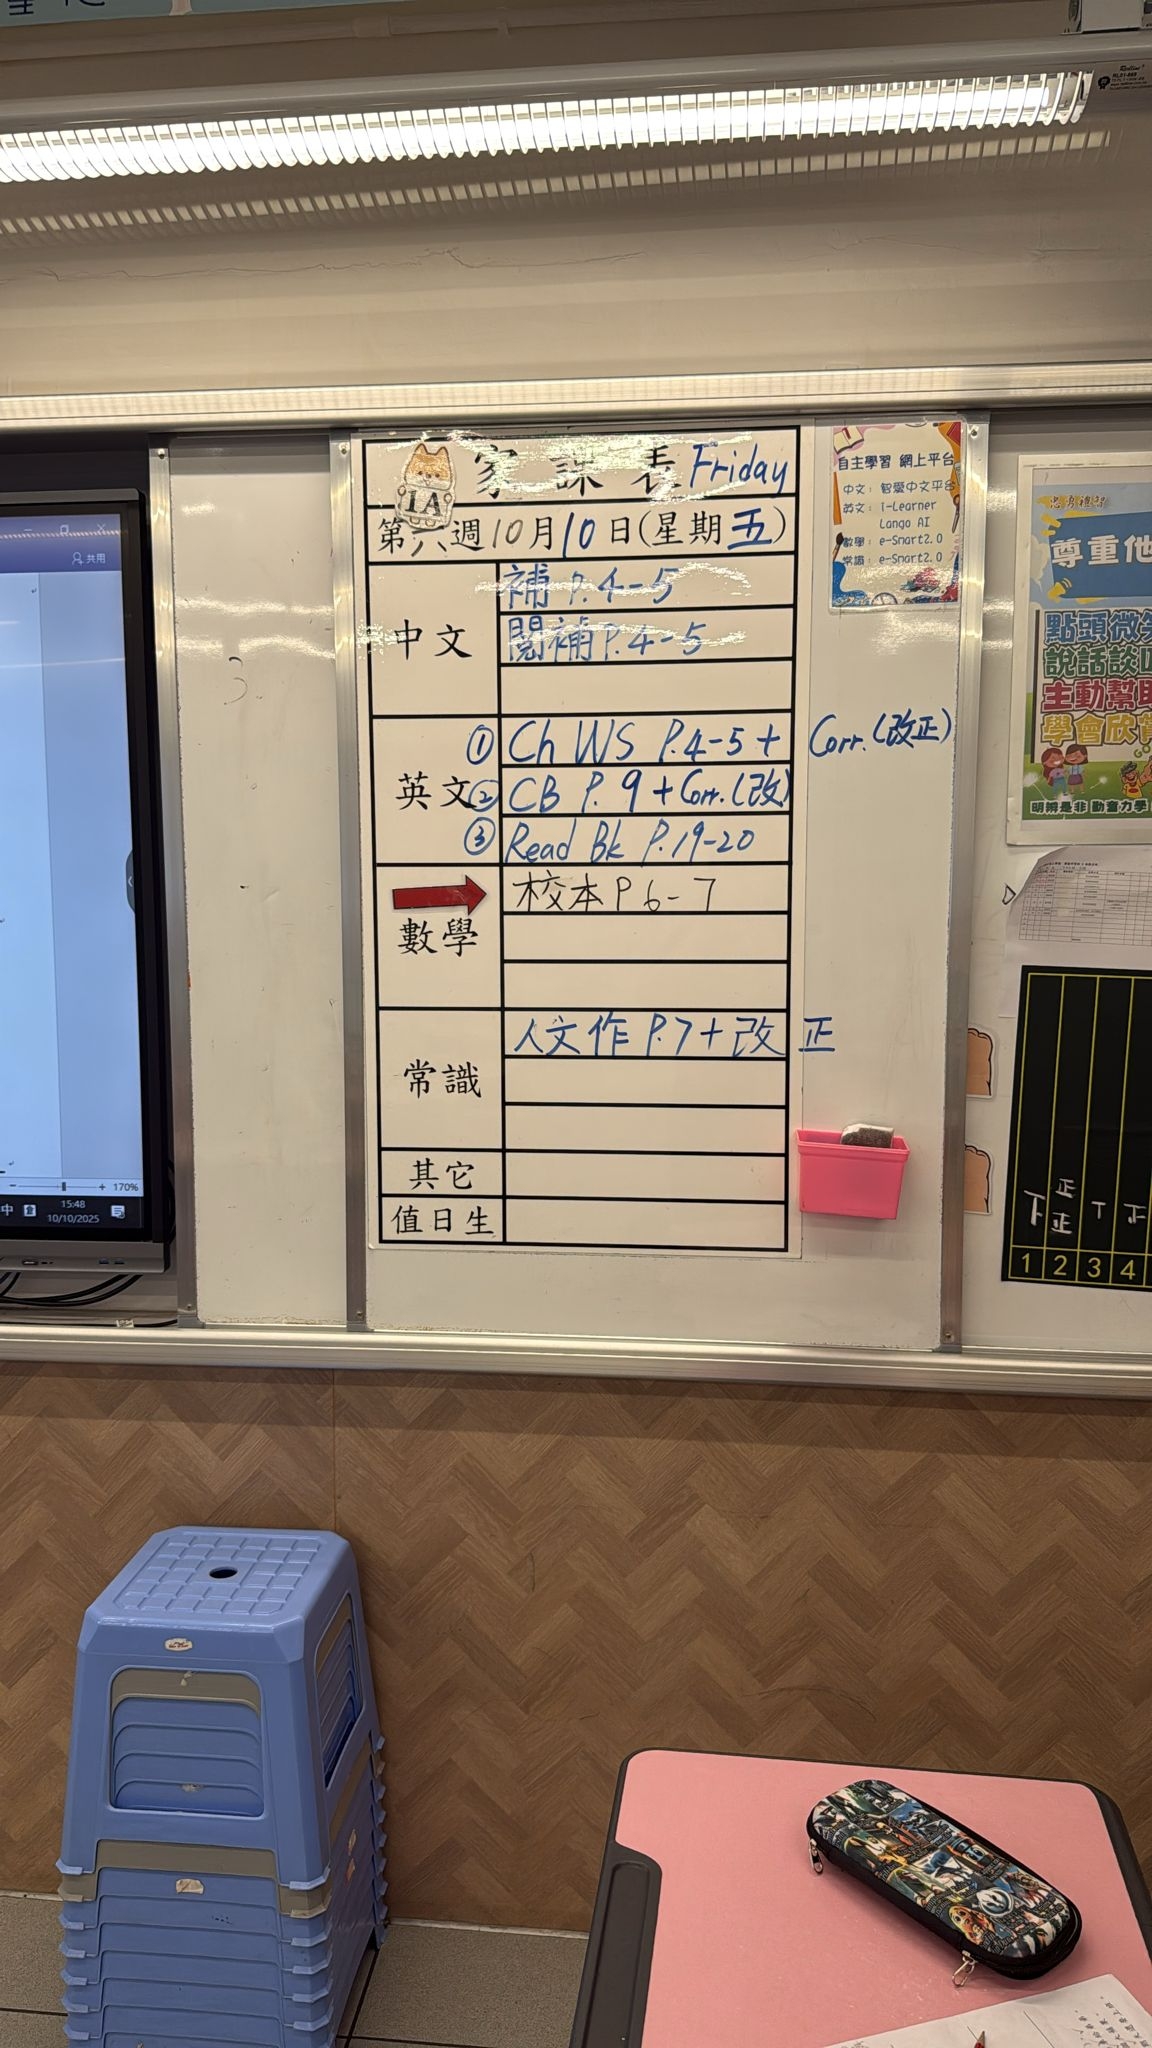 家課表 Friday
1A
第六週10月10日(星期五)
中文
補 P.4-5
閱補 P.4-5
英文
① Ch WS P.4-5 + Corr.(改正)
② CB P.9 + Corr.(改)
③ Read Bk P.19-20
數學
校本 P 6-7
常識
人文作 P.7 + 改正
其它
值日生
自主學習 網上平台
中文：智愛中文平台
英文：i-Learner
Lango AI
數學：e-Smart2.0
常識：e-Smart2.0
尊重他
點頭微笑
說話談
主動幫助
學會欣賞
明辨是非 勤奮力學
共用
3.
170%
中
15:48
10/10/2025
下 正 正 T 正
1 2 3 4